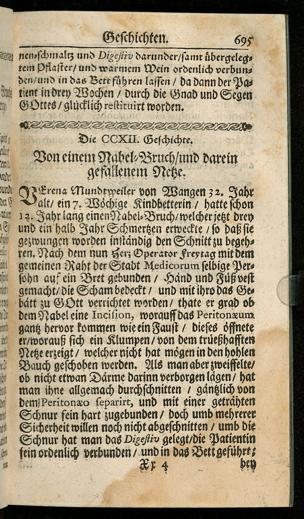 Geschichten. 695
nen-schmaltz und Digestiv darunder/samt übergeleg-
tem Pflaster/ und warmem Wein ordenlich verbun-
den/und in das Bett führen lassen / da dann der Pa-
tient in drey Wochen / durch die Gnad und Segen
GOttes / glücklich restituirt worden.
Die CCXII. Geschichte.
Von einem Nabel-Bruch/und darein
gefallenem Netze.
VErena Mundtweiler von Wangen 32. Jahr
alt/ ein 7. Wöchige Kindbetterin / hatte schon
13. Jahr lang einen Nabel-Bruch/welcher jetzt drey
und ein halb Jahr Schmertzen erweckte / so daß sie
gezwungen worden inständig den Schnitt zu begeh-
ren. Nach dem nun Herz Operator Freytag mit dem
gemeinen Raht der Stadt Medicorum selbige Per-
sohn auf ein Brett gebunden / Händ und Füß vest
gemacht/ die Scham bedeckt / und mit ihro das Ge-
bätt zu GOtt verrichtet worden / thate er grad ob
dem Nabel eine Incision, worauff das Peritonæum
gantz hervor kommen wie ein Faust / dieses öffnete
er/worauß sich ein Klumpen/ von dem trüeßhafften
Netze erzeigt / welcher nicht hat mögen in den hohlen
Bauch geschoben werden. Als man aber zweiffelte/
ob nicht etwan Därme darinn verborgen lägen / hat
man ihne allgemach durchschnitten / gäntzlich von
dem Peritonæo separirt, und mit einer geträhten
Schnur fein hart zugebunden / doch umb mehrerer
Sicherheit willen noch nicht abgeschnitten / umb die
Schnur hat man das Digestiv gelegt/die Patientin
fein ordenlich verbunden / und in das Bett geführt;
Xx 4 bey